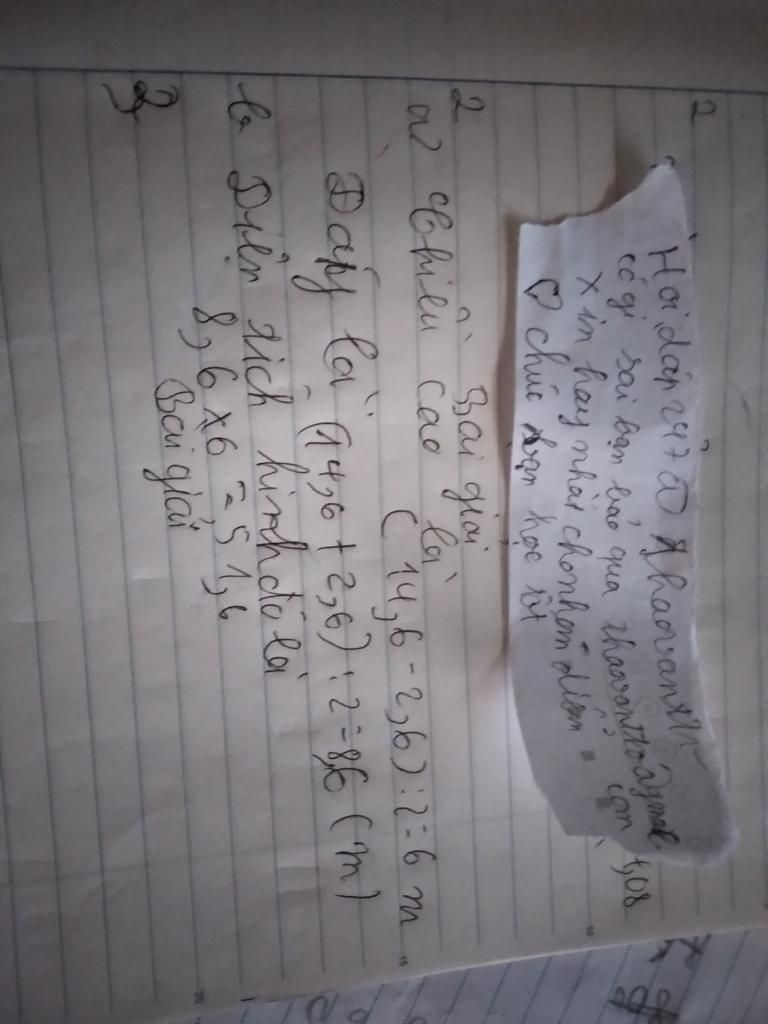 2
Hỏi đáp 247
có gì sai bạn bảo qua
xin hay nhất
♡ chúc bạn học tốt
1,08
2
Bài giải
a? Chiều cao là
(14,6 - 2,6) : 2 = 6 m
Đáy là (14,6 + 2,6) : 2 = 8,6 (m)
b. Diện tích hình đó là
8,6 x 6 = 51,6
3
Bài giải